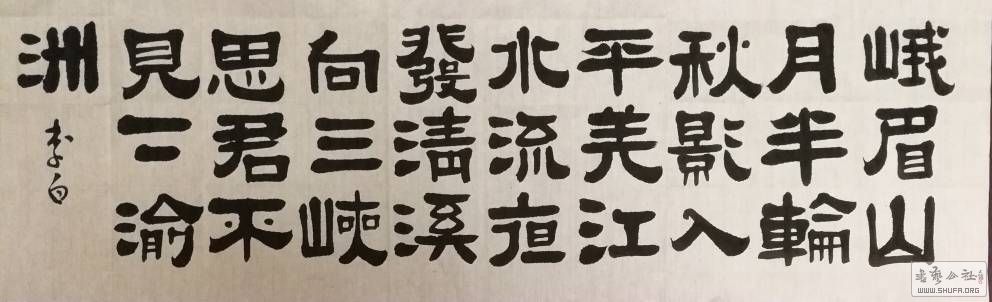 峨眉山
月半輪
秋影入
平羌江
水流夜
發清溪
向三峽
思君不
見下渝
洲
李白
书艺公社
WWW.SHUFA.ORG